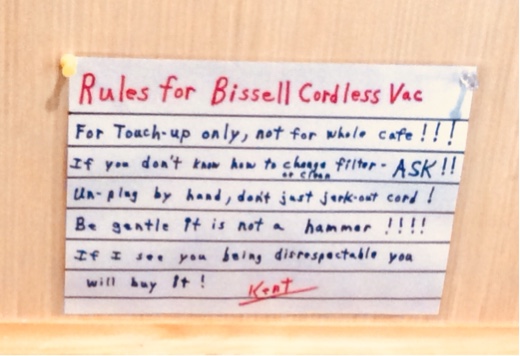 Rules for Bissell Cordless Vac
For Touch-up only, not for whole cafe!!!
If you don't know how to change filter - ASK!!
or clean
Un-plug by hand, don't just jerk-out cord!
Be gentle it is not a hammer !!!!
If I see you being disrespectable you
will buy it!
Kent